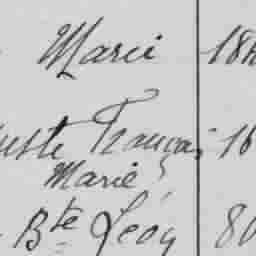 Marie 18
uste Françai 16
Marie
Bte Léon 80